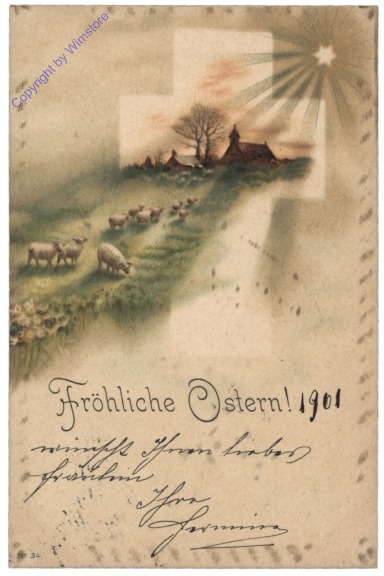 Copyright by Wimstore
Fröhliche Ostern! 1901
wünscht Ihnen liebes
Fräulein
Ihre
Hermine
Nº 34